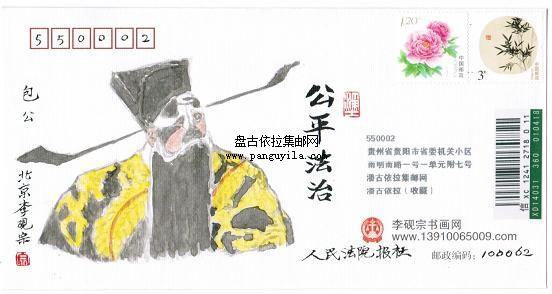 550002
1.20元
中国邮政
3元
中国邮政
包公
北京李砚宗
盘古依拉集邮网
www.panguyila.com
公平法治
550002
贵州省贵阳市省委机关小区
南明南路一号一单元附七号
潘古依拉集邮网
潘古依拉（收藏）
李砚宗书画网
www.13910065009.com
人民法院报社
邮政编码：100062
信 XC 1241 2718 0 11
X014031 360 010418